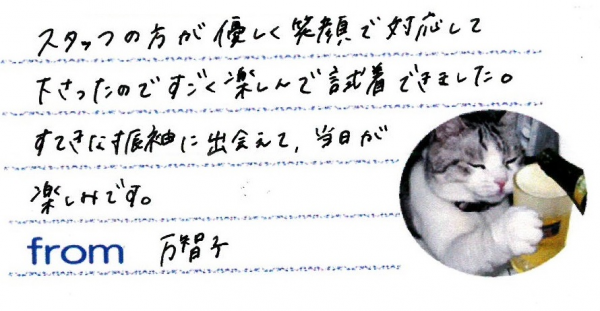 スタッフの方が優しく笑顔で対応して
下さったのですごく楽しんで試着できました。
すてきな振袖に出会えて、当日が
楽しみです。
from 万智子